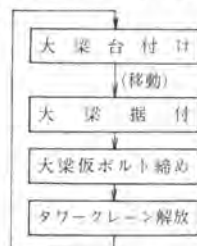 大梁台付け
(移動)
大梁据付
大梁仮ボルト締め
タワークレーン解放